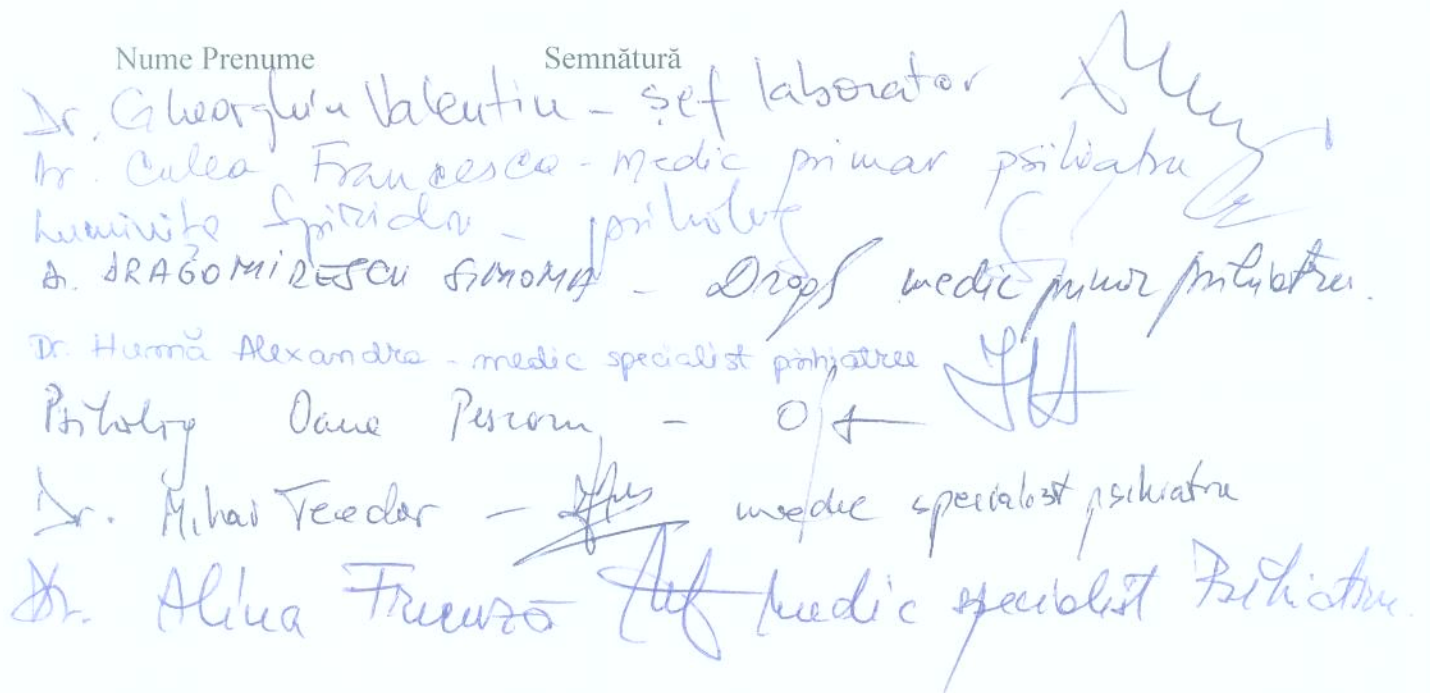 Nume Prenume Semnătură
Dr. Gheorghiu Valentin - şef laborator
Dr. Culea Francesca - medic primar psihiatru
Luminiţa Spiridon - psiholog
Dr. DRAGOMIRESCU SIMONA - medic primar psihiatru.
Dr. Humă Alexandra - medic specialist psihiatrie
Psiholog Oana -
Dr. Mihai Teodor - medic specialist psihiatru
Dr. Alina Frunză Medic specialist Psihiatru.